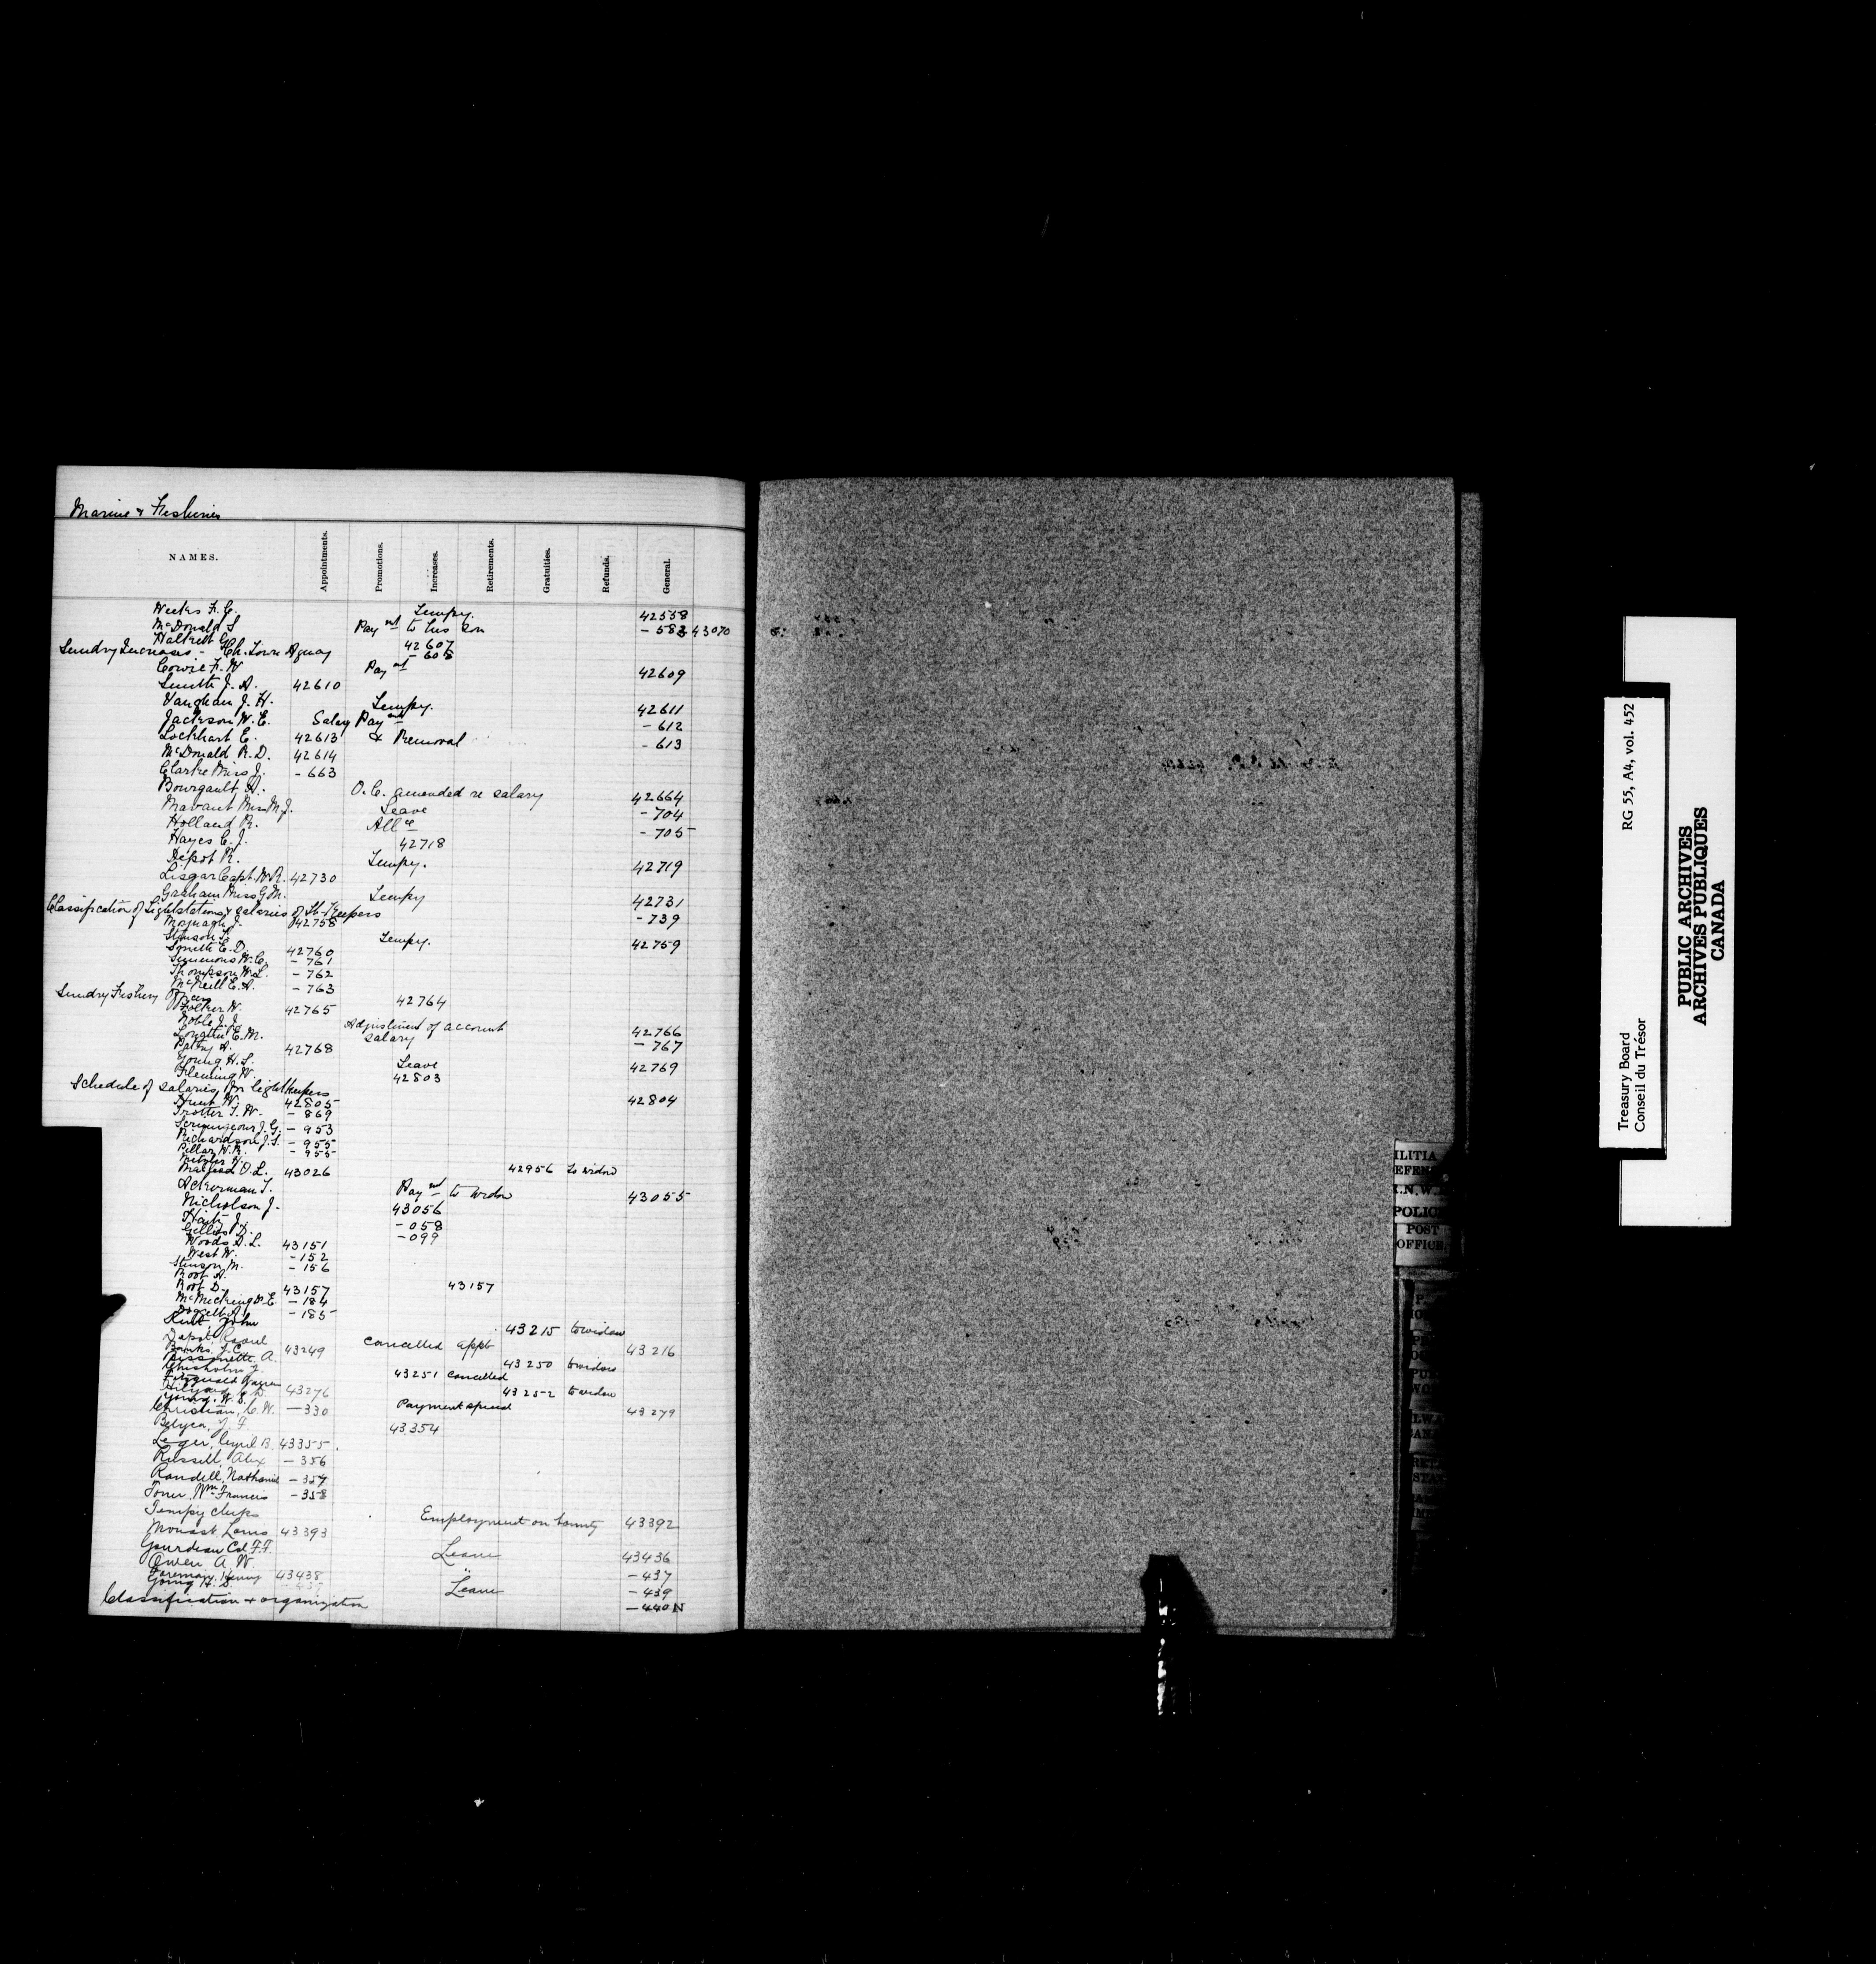 Marine & Fisheries
NAMES. Appointments. Promotions. Increases. Retirements. Gratuities. Refunds. General.
Weeks F. C. Tempy. 42558
McDonald S Paynt to his son - 583 43070
Halkett 42607
Sundry Increases - Ch. Town Agency - 608
Cowie F. W Paynt 42609
Smith J. A. 42610
Vaughan J. H. Tempy. 42611
Jackson W. E. Salary Paynt - 612
Lockhart E. 42613 & Removal - 613
McDonald R. D. 42614
Clarke Miss J. - 663
Bourgault A. O. C. amended re salary 42664
Mavant Mrs M. J. Leave - 704
Holland R. Allce - 705
Hayes C. J. 42718
Depot R. Tempy. 42719
Lisgar Capt. W. R. 42730
Graham Miss G. M. Tempy 42731
Classification of Lightstations & salaries of Lt. Keepers - 739
42758
Stinson Tempy. 42759
Smith E. D. 42760
Simmons W. C. - 761
Thompson W. L. - 762
McNeill E. A. - 763
Sundry Fishery Officers 42764
W. 42765
Noble J. J. Adjustment of account 42766
E. M. salary - 767
A. 42768
Young H. S. Leave 42769
Fleming W. 42803
Schedule of salaries for lightkeepers 42804
Hunt W. 42805
Trotter T. W. - 869
Scrimgeour J. G. - 953
Richardson J. S. - 955
Pillar W. R. - 955
H. 42956 to widow
O. L. 43026
Ackerman T. Paynt to widow 43055
Nicholson J. 43056
- 058
Gillies D. - 099
Woods A. L. 43151
West W. - 152
Stinson M. - 156
Root A. 43157
Root D. 43157
McMicking D. E. - 184
- 185
John 43215 to widow
Depot Raoul cancelled appt 43216
Banks, J. C. 43249
Bissonette A. 43250 to widow
Chisholm J. 43251 cancelled
Fitzgerald 43252 to widow
Hilyard D. 43276
Young. W. S. Payment 43279
Christian, C. W. - 330
Belyea, J. F. 43354
Leger, Cyril B. 43355
Russell, Alex - 356
Randell, Nathaniel - 357
Toner, Wm Francis - 358
Tempy clerks Employment on bounty 43392
Louis 43393
Gourdeau Col. F. F. Leave 43436
Owen A. W. " - 437
Foreman, Henry 43438
Young H. S. Leave - 439
Classification & organization - 440 N
ILITIA
EFENS
.N.W.
POLICE
POST
OFFICE.
Treasury Board
Conseil du Trésor
RG 55, A4, vol. 452
PUBLIC ARCHIVES
ARCHIVES PUBLIQUES
CANADA